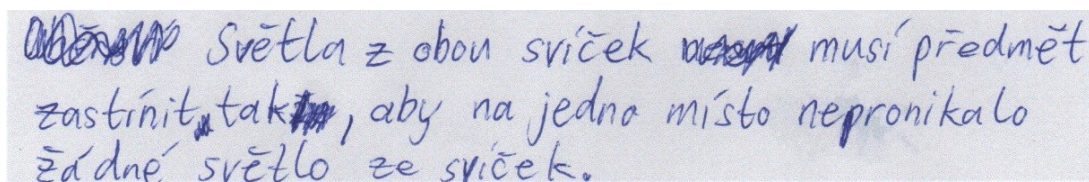 Světla z obou svíček musí předmět
zastínit tak, aby na jedno místo nepronikalo
žádné světlo ze svíček.